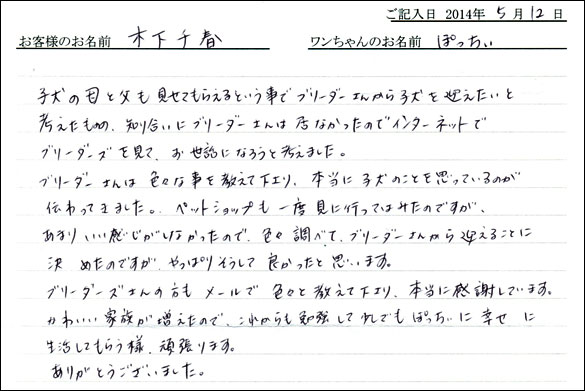 ご記入日 2014年 5月12日
お客様のお名前 木下千春 ワンちゃんのお名前 ぽっちぃ
子犬の母と父も見せてもらえるという事でブリーダーさんから子犬を迎えたいと
考えたものの、知り合いにブリーダーさんは居なかったのでインターネットで
ブリーダーズを見て、お世話になろうと考えました。
ブリーダーさんは色々な事を教えて下さり、本当に子犬のことを思っているのが
伝わってきました。ペットショップも一度見に行ってはみたのですが、
あまりいい感じがしなかったので、色々調べて、ブリーダーさんから迎えることに
決めたのですが、やっぱりそうして良かったと思います。
ブリーダーズさんの方もメールで色々と教えて下さり、本当に感謝しています。
かわいい家族が増えたので、これからも勉強して少しでもぽっちぃに幸せに
生活してもらう様、頑張ります。
ありがとうございました。